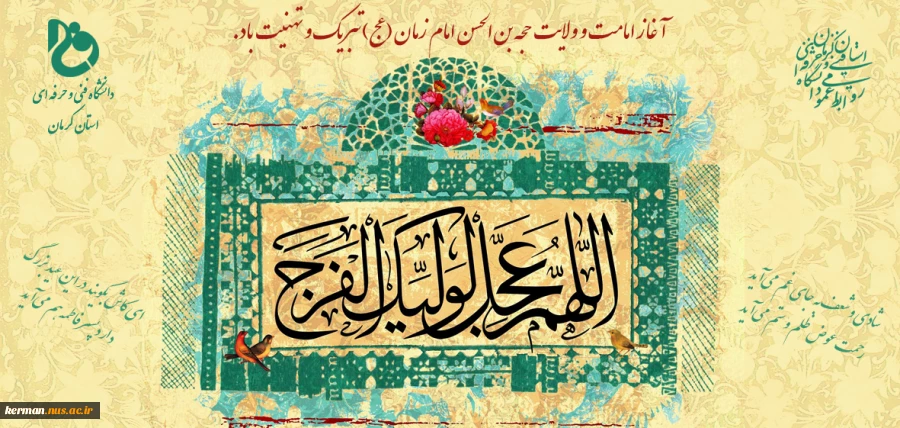 آغاز امامت و ولایت حجه بن الحسن امام زمان (عج) تبریک و تهنیت باد.
دانشگاه فنی و حرفه ای
استان کرمان
اللهم عجل لولیک الفرج
شادی و خنده جای غم می‌آید
رحمت عوض ظلم و ستم می‌آید
ای کاش بگویند در این عید بزرگ
دارد پسر فاطمه هم می‌آید
kerman.nus.ac.ir